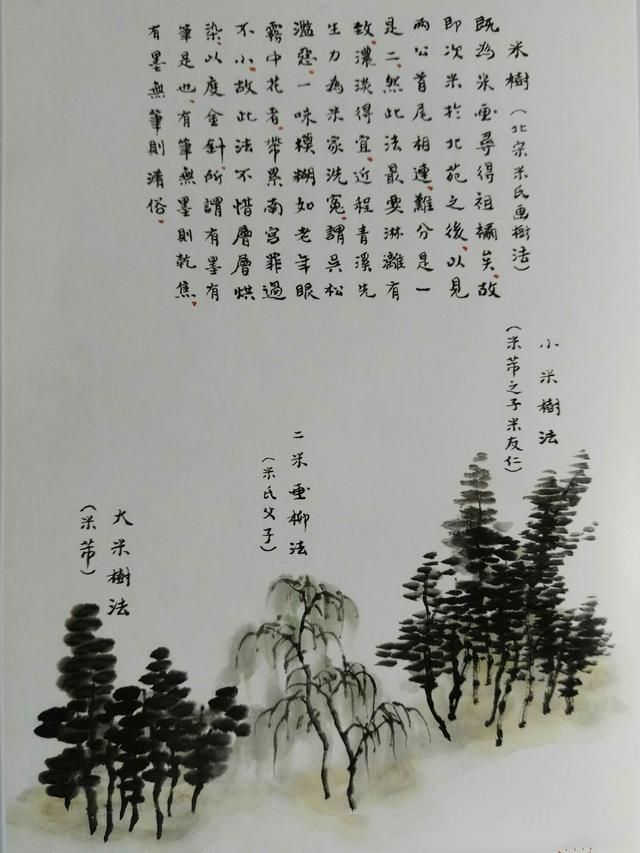 米樹（北宋米氏画樹法）
既為米畫尋得祖禰矣、故
即次米於北苑之後、以見
兩公首尾相連、難分是一
是二、然此法最要淋漓有
致、濃淡得宜、近程青溪先
生力為米家洗冤、謂吳松
濫惡、一味模糊如老年眼
霧中花者、帶累南宮罪過
不小、故此法不惜層層烘
染、以度金針、所謂有墨有
筆是也、有筆無墨則乾焦、
有墨無筆則淆俗、
小米樹法
（米芾之子米友仁）
二米畫柳法
（米氏父子）
大米樹法
（米芾）